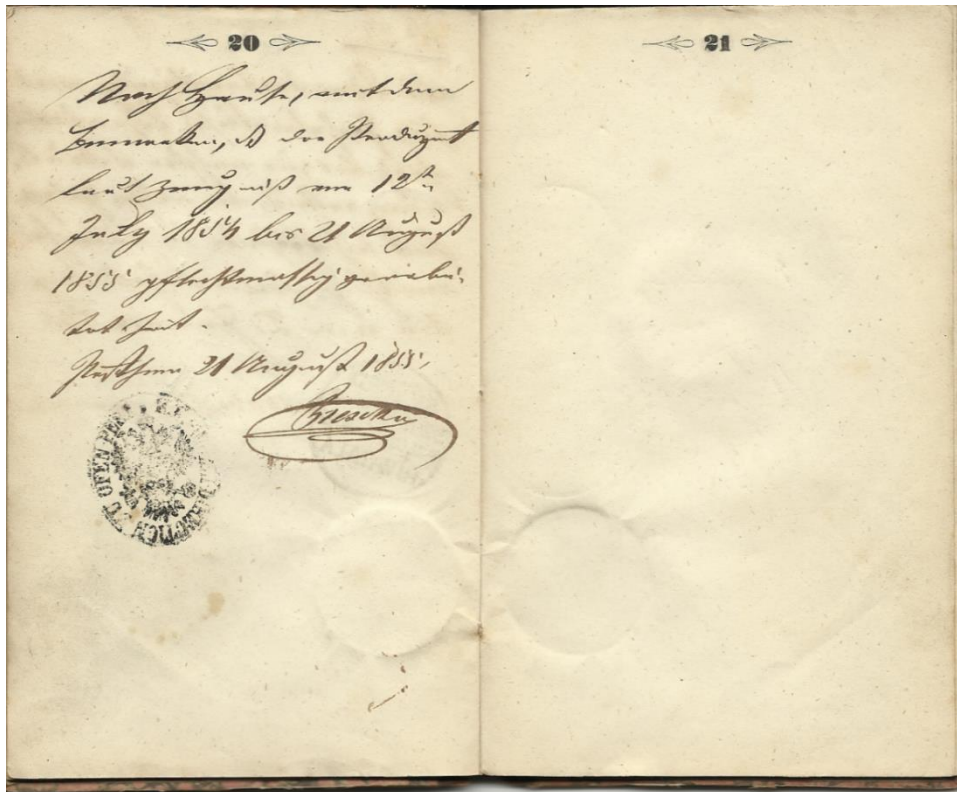 20
Nach Hause, mit dem
Bemerken, dß der Produzent
laut Zeugniß vom 12ten
July 1854 bis 21 August
1855 pflichtmässig gearbei-
tet hat.
21 August 1855.
ZU OFEN
21